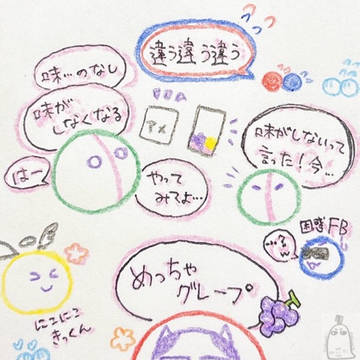 違う違う違う
味…のなし
味が
しなくなる
アメ
はー
やって
みてよ…
味がしないって
言った!今…
困惑FB
…るん
めっちゃ
グレープ
にこにこ
きっくん